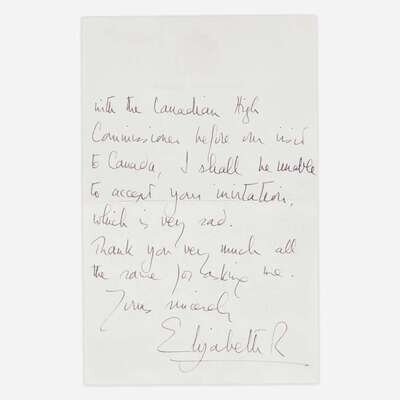 with the Canadian High
Commissioner before our visit
to Canada, I shall be unable
to accept your invitation,
which is very sad.
Thank you very much all
the same for asking me.
Yours sincerely
Elizabeth R